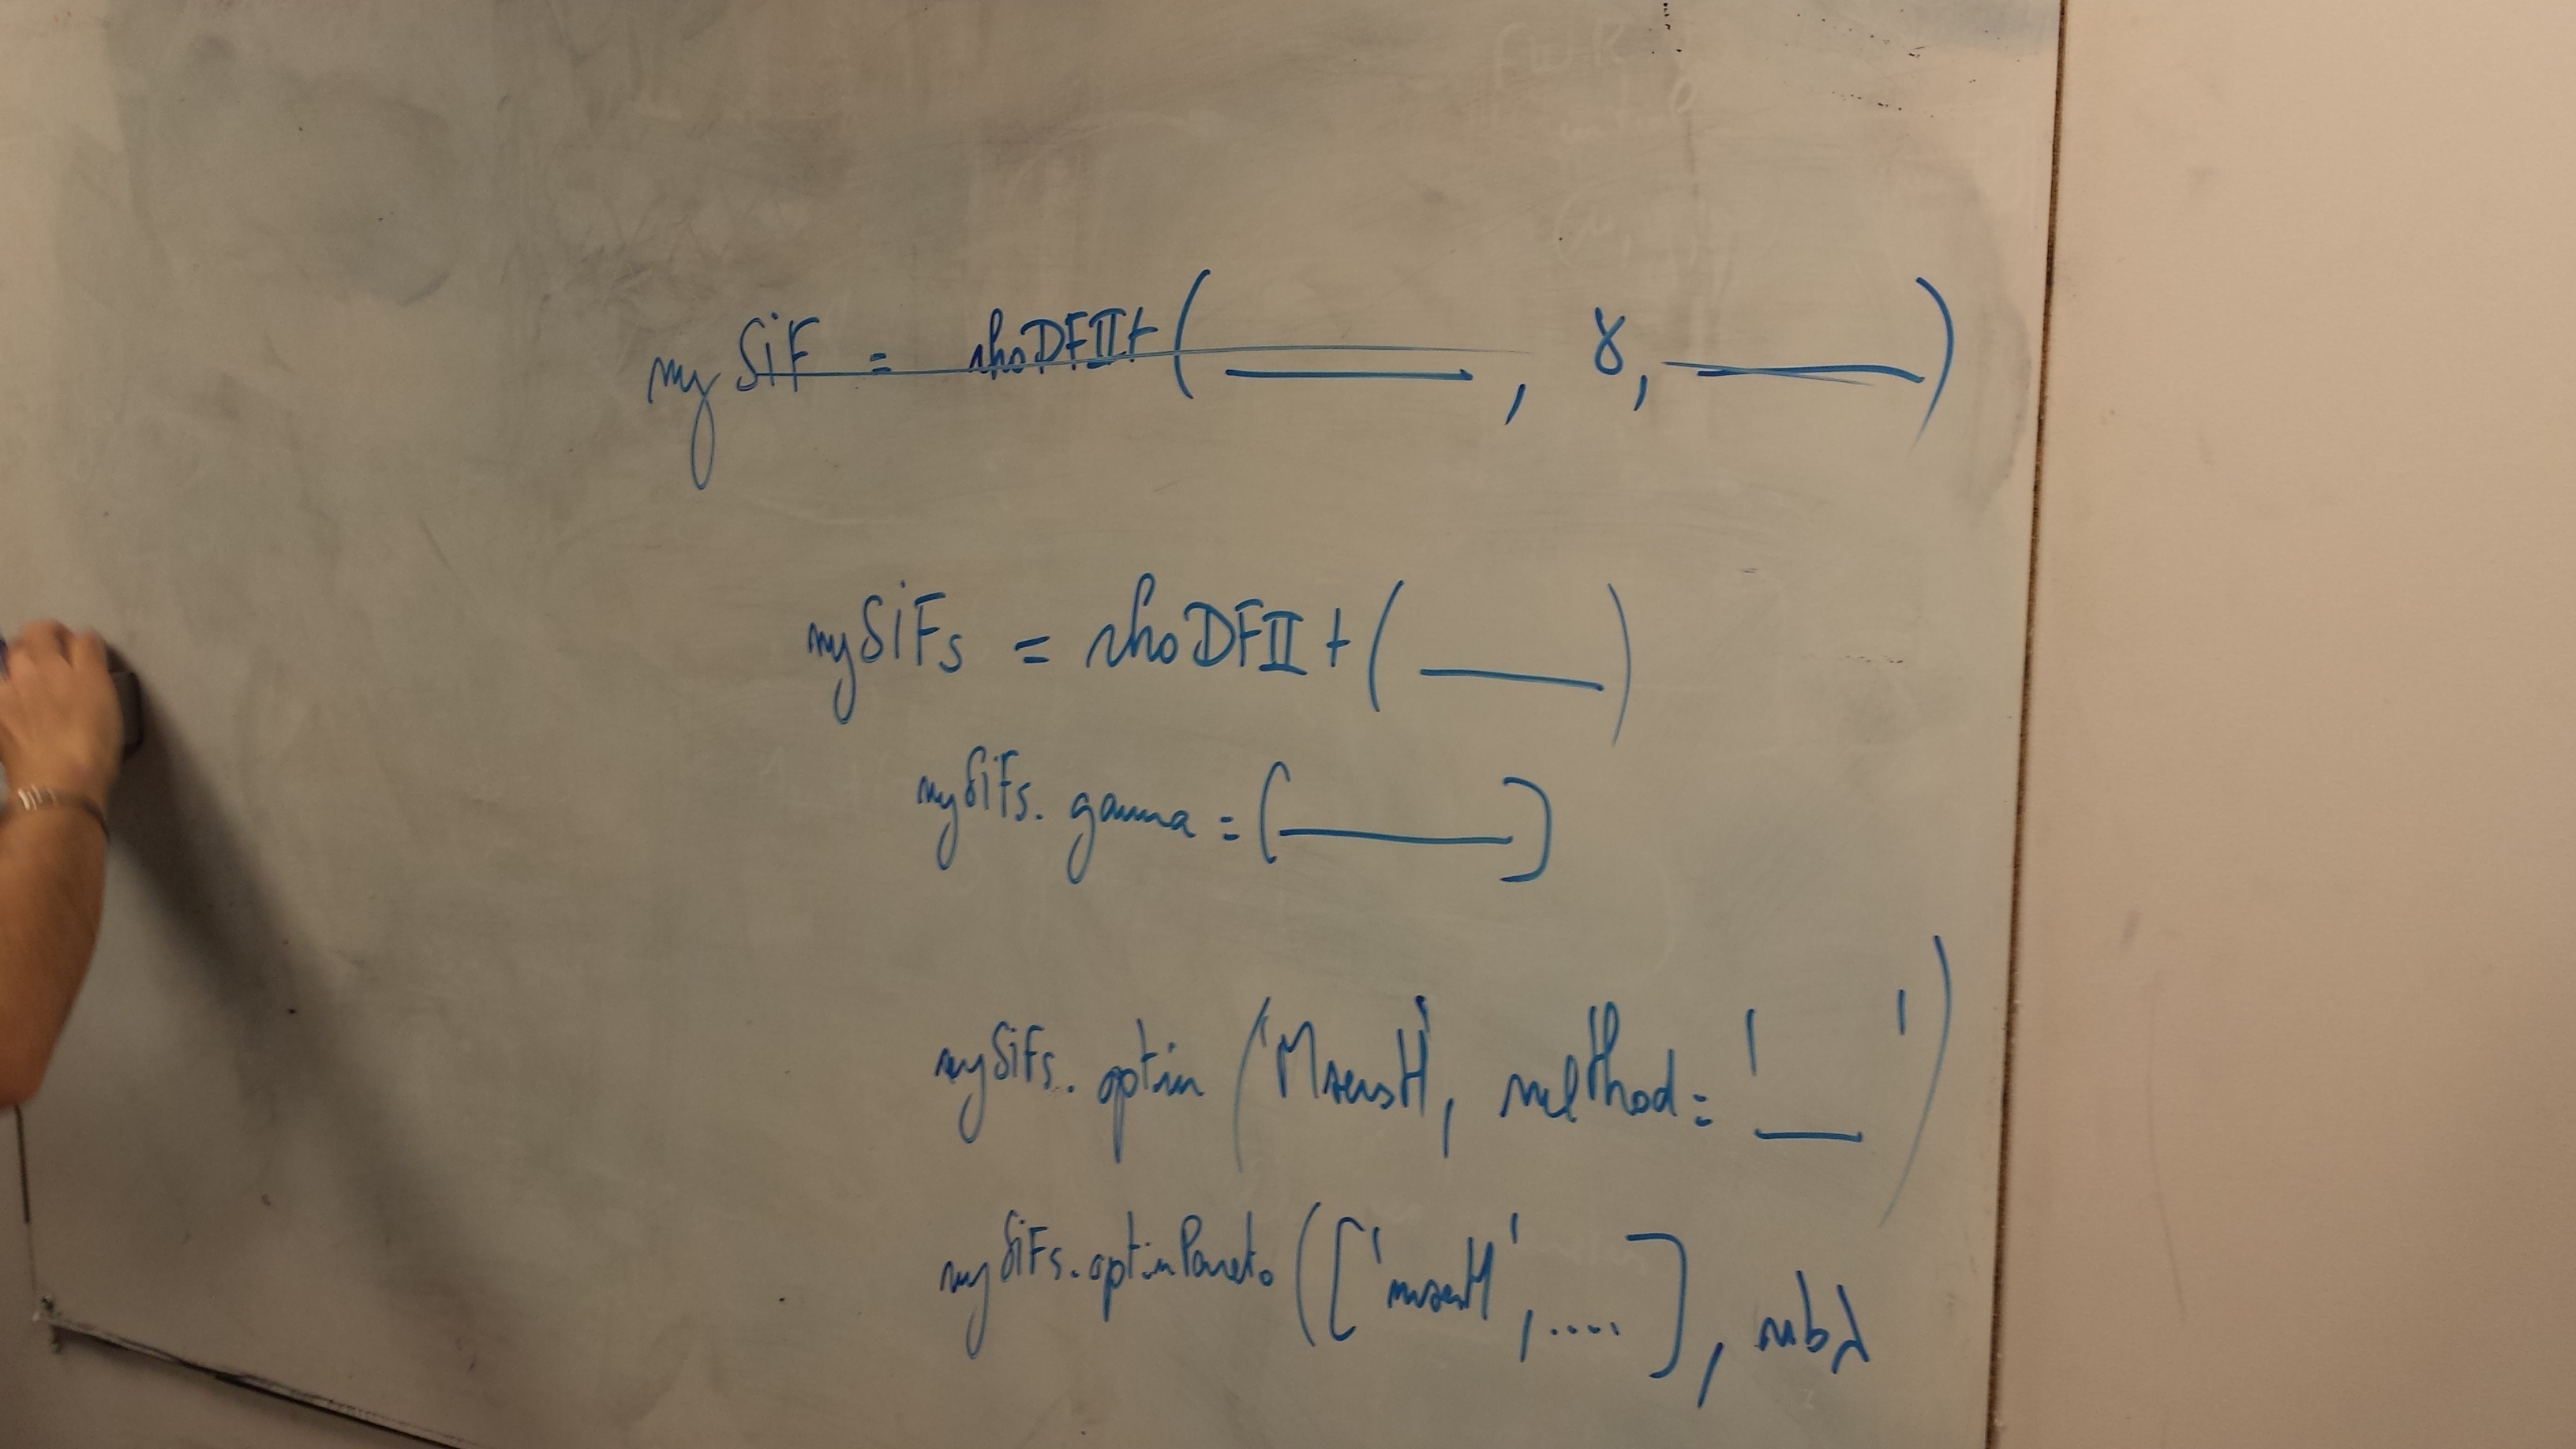 mySiF = rhoDFIIt( ____ , γ, ____ )
mySiFs = rhoDFIIt( ____ )
mySiFs. gamma = [ ____ ]
mySiFs. optim ('MsensH', method= '__')
mySiFs.optimPareto (['msensH', ....], nbλ